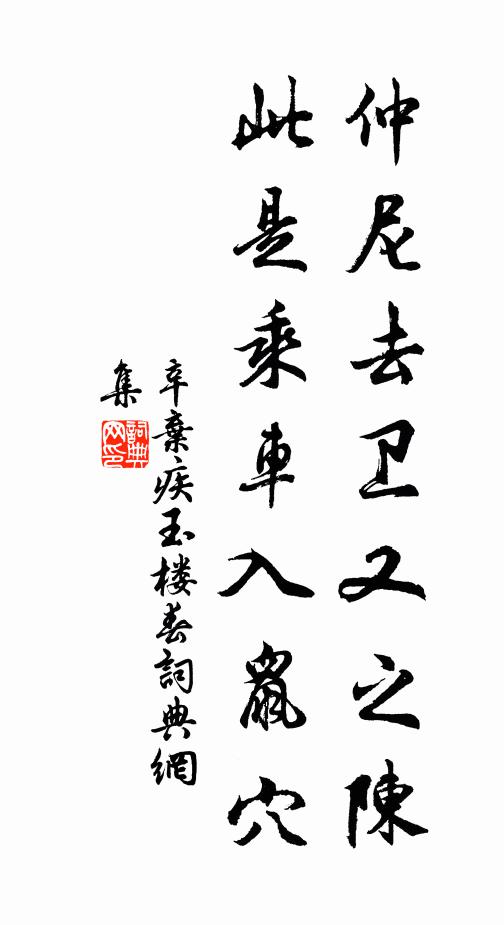 仲尼去卫又之陳
此是乘車入鼠穴
辛棄疾玉楼春詞典網
集
詞典网印